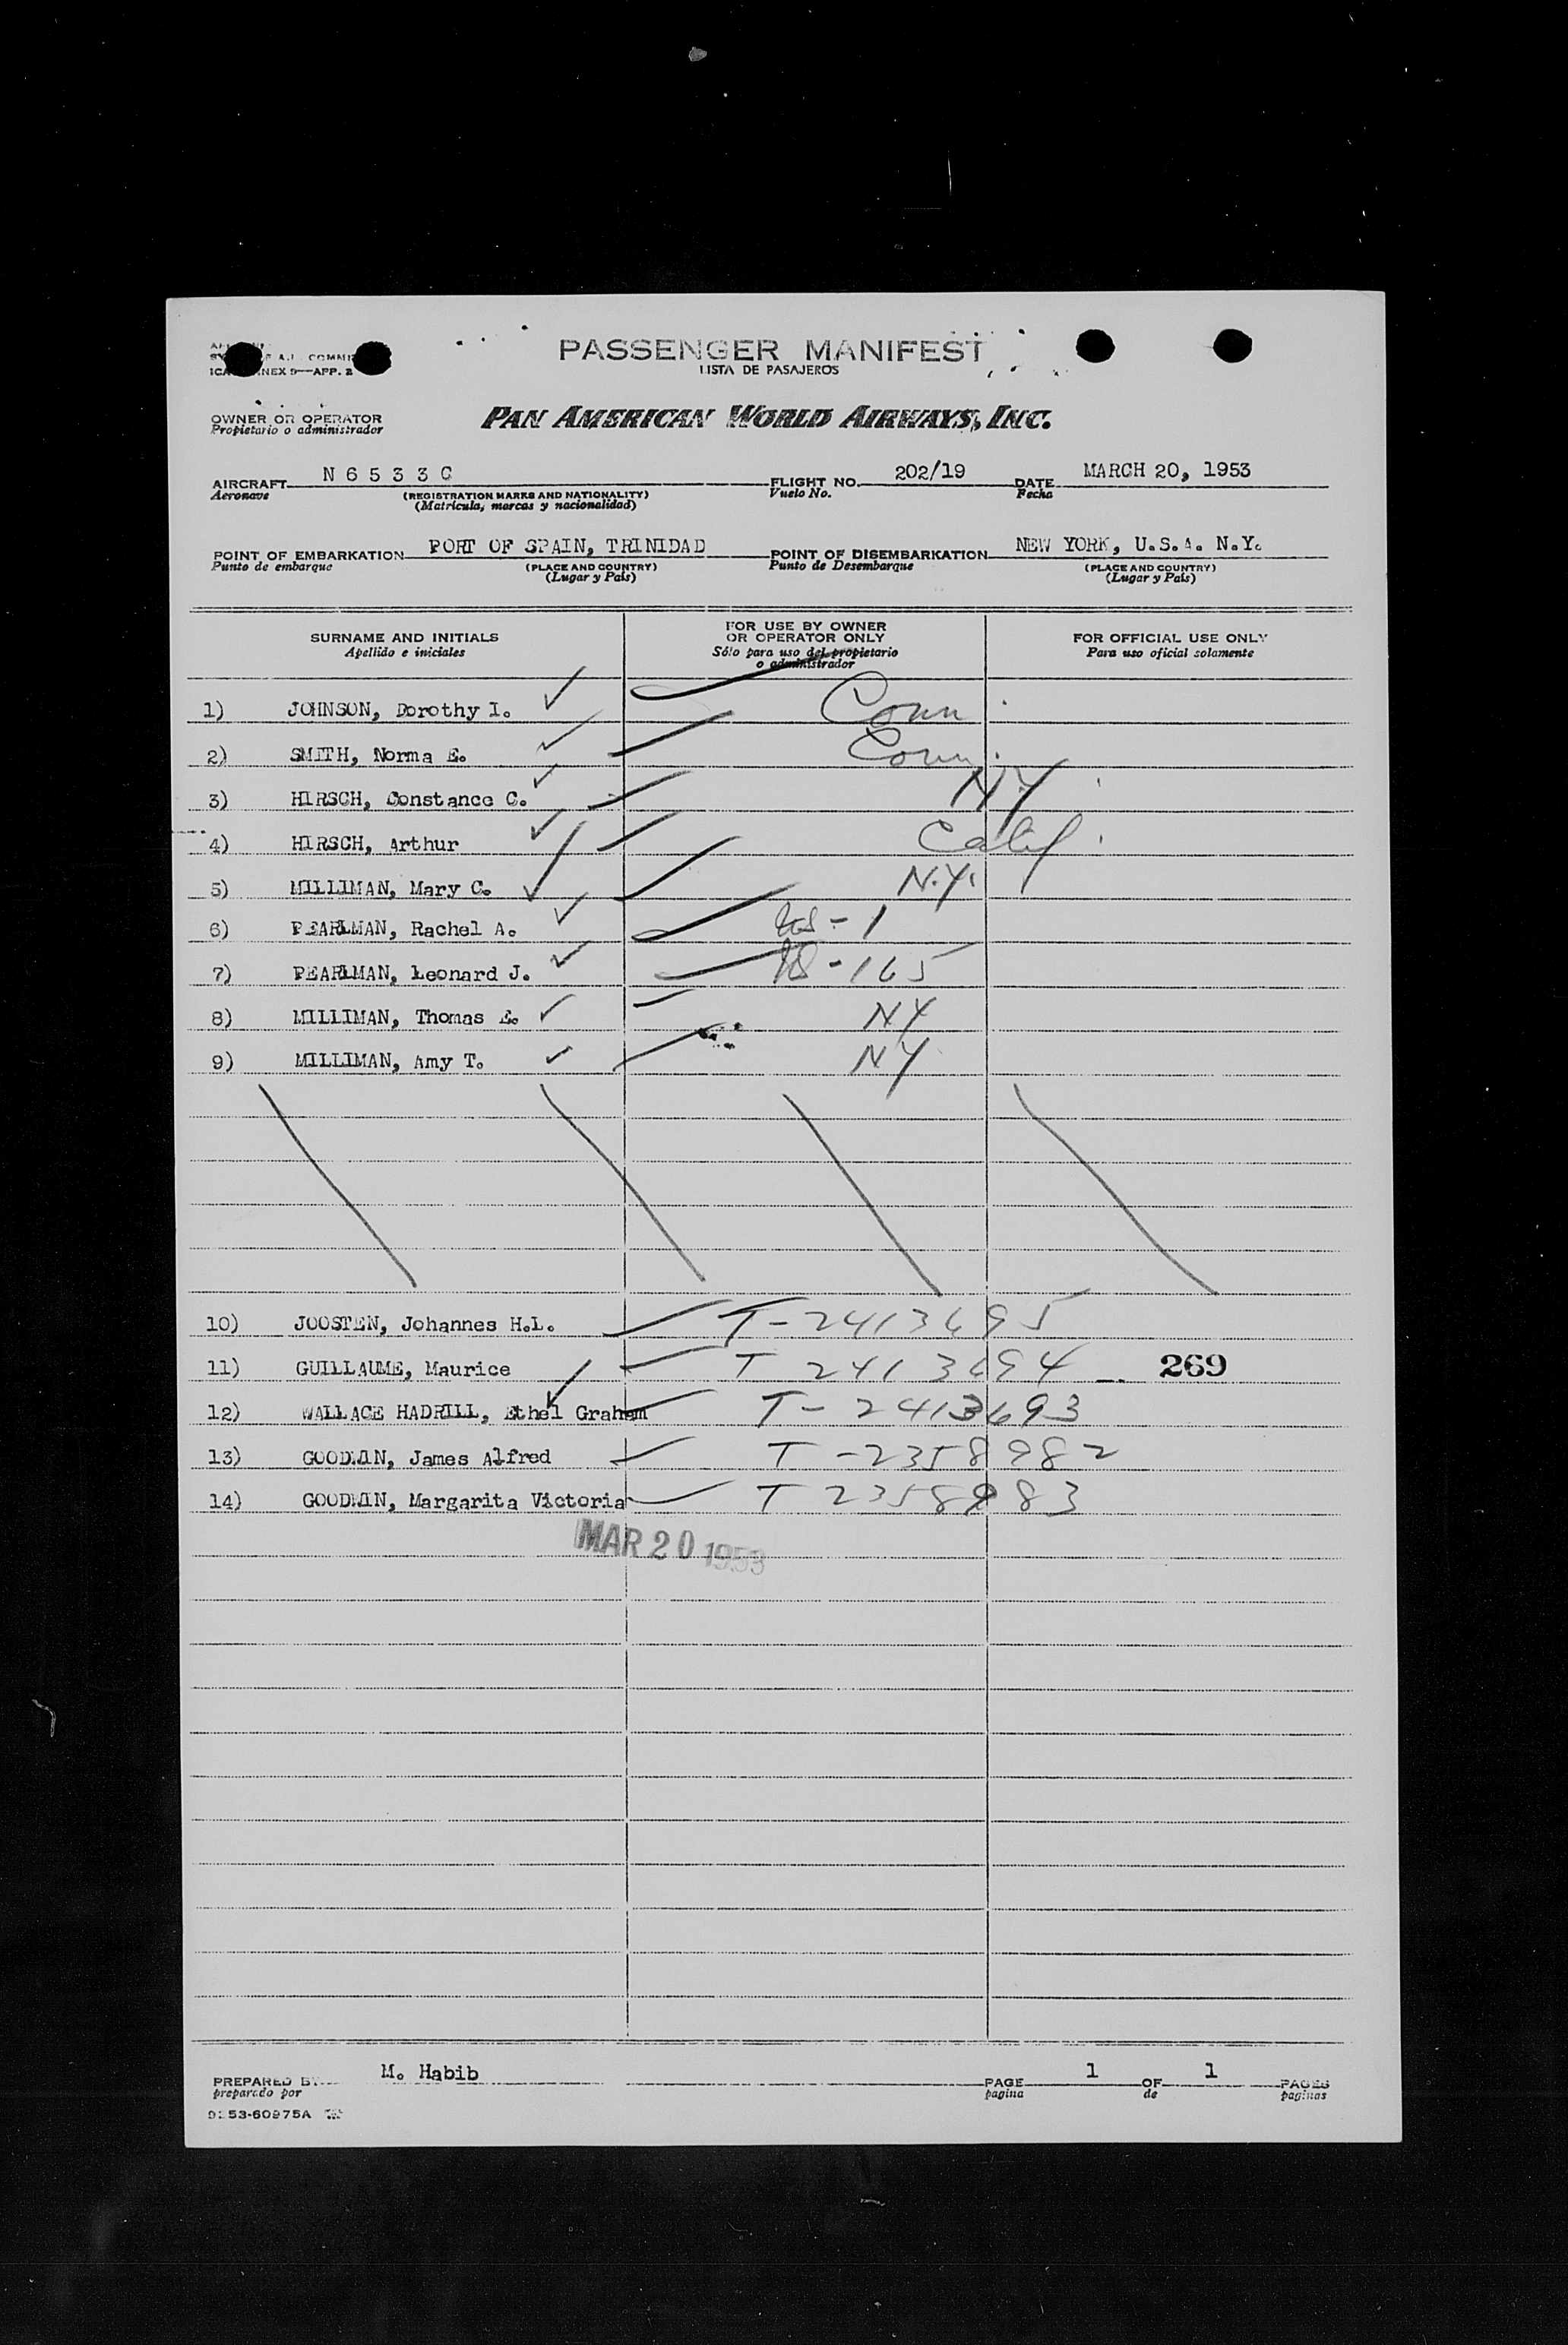 PASSENGER MANIFEST
LISTA DE PASAJEROS
A.I. COMMI
ICA NNEX 9—APP. 2
OWNER OR OPERATOR
Propietario o administrador
PAN AMERICAN WORLD AIRWAYS, INC.
AIRCRAFT N 6 5 3 3 C FLIGHT NO. 202/19 DATE MARCH 20, 1953
Aeronave (REGISTRATION MARKS AND NATIONALITY) Vuelo No. Fecha
(Matricula, marcas y nacionalidad)
POINT OF EMBARKATION PORT OF SPAIN, TRINIDAD POINT OF DISEMBARKATION NEW YORK, U.S.A. N.Y.
Punto de embarque (PLACE AND COUNTRY) Punto de Desembarque (PLACE AND COUNTRY)
(Lugar y País) (Lugar y País)
SURNAME AND INITIALS FOR USE BY OWNER OR OPERATOR ONLY FOR OFFICIAL USE ONLY
Apellido e iniciales Sólo para uso del propietario o administrador Para uso oficial solamente
1) JOHNSON, Dorothy I. Conn
2) SMITH, Norma E. Conn.
3) HIRSCH, Constance C. NY
4) HIRSCH, Arthur Calif.
5) MILLIMAN, Mary C. N.Y.
6) PEARLMAN, Rachel A. - 1
7) PEARLMAN, Leonard J. - 165
8) MILLIMAN, Thomas E. NY
9) MILLIMAN, Amy T. NY
10) JOOSTEN, Johannes H.L. T-2413695
11) GUILLAUME, Maurice T 2413694 269
12) WALLACE HADRILL, Ethel Graham T-2413693
13) GOODWIN, James Alfred T-2358982
14) GOODWIN, Margarita Victoria T 2358983
MAR 20 1953
PREPARED BY M. Habib PAGE 1 OF 1 PAGES
preparado por pagina de paginas
53-60975A